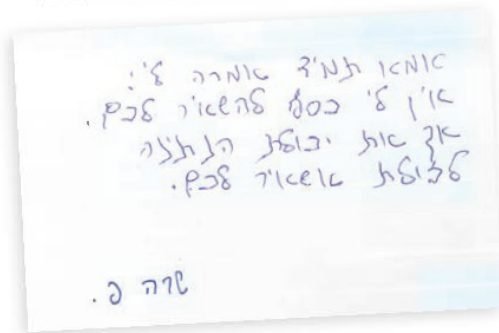 אמא תמיד אומרת לי:
אין לי כסף להשאיר לכם.
אך את יכולת הנתינה
לזולת אשאיר לכם.
שרה פ.